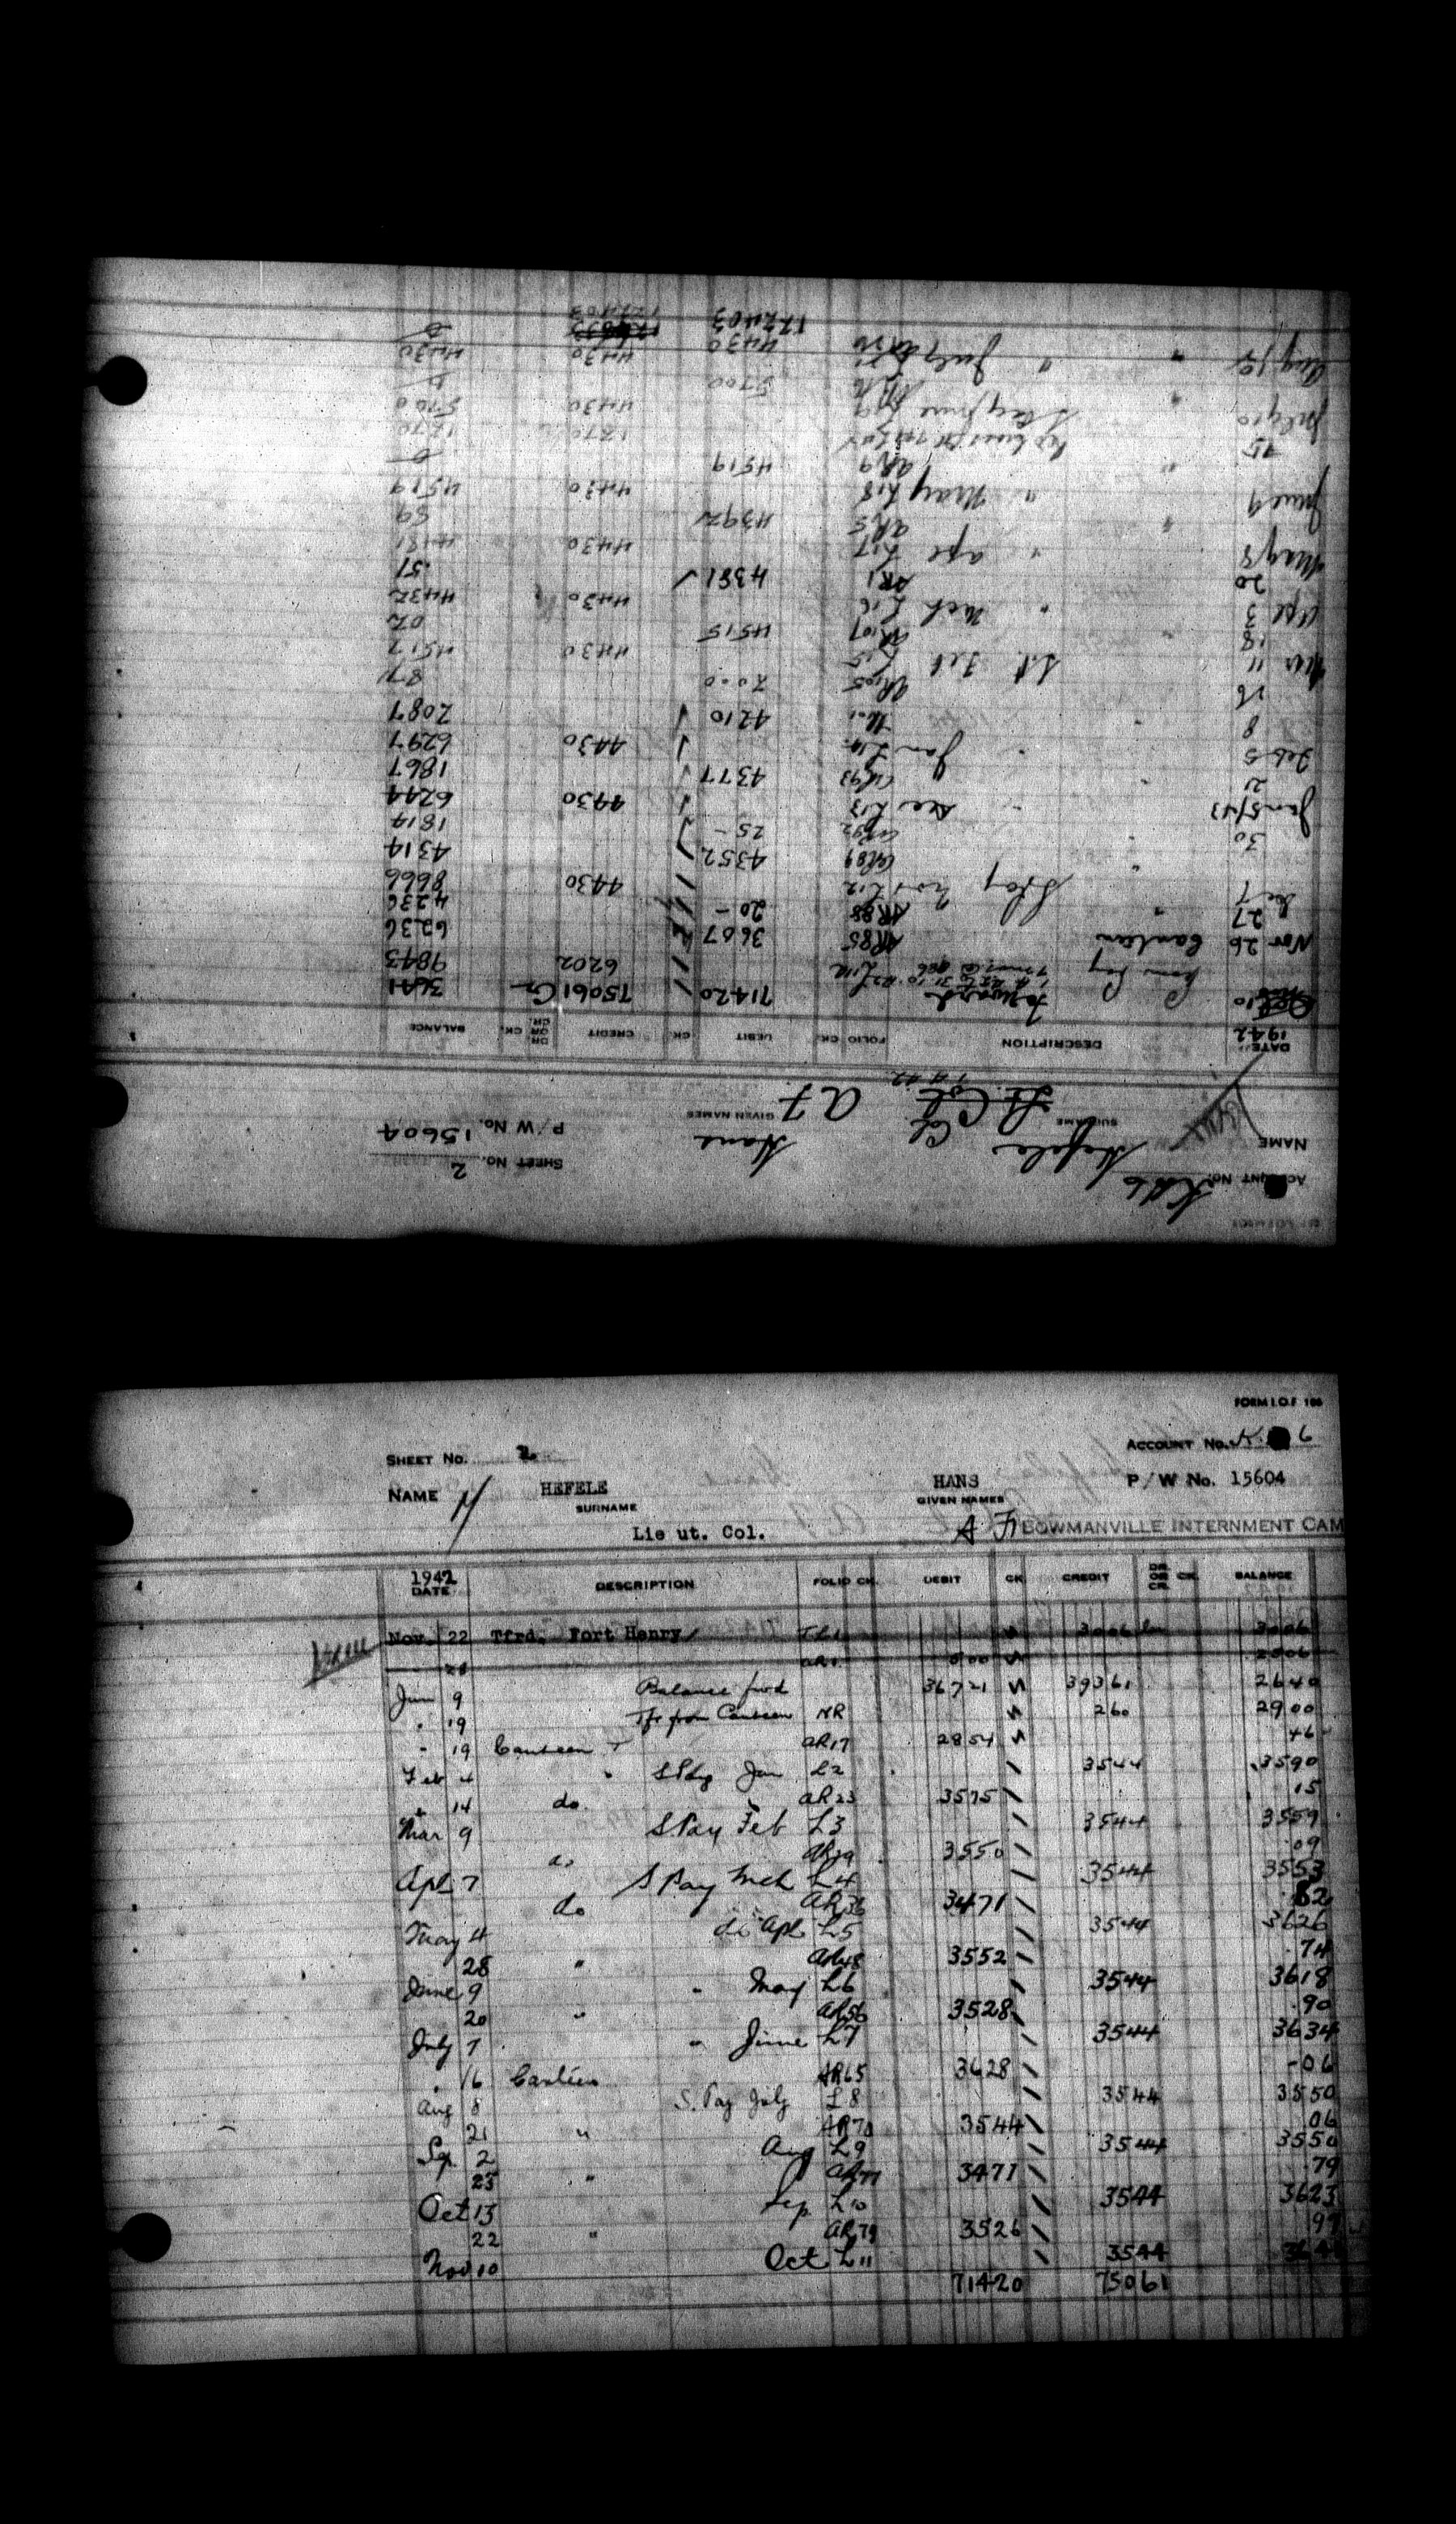 SHEET NO. 2
P/W NO. 15604
NAME Hefele Hans
SURNAME GIVEN NAMES
Lt Col Col A F
1942 DATE DESCRIPTION FOLIO CK. DEBIT CK. CREDIT DR. OR CR. CK. BALANCE
10 Forward 71420 75061 Cr 3641
L112 6202 9843
Nov 26 Canteen AR85 3607 6236
27 " AR88 20 – 4236
Dec 7 S Pay Nov L12 4430 8666
AR89 4352 4314
30 AR92 25 – 1814
Jan 5/43 Dec L13 4430 6244
21 AR93 4377 1867
Feb 5 Jan L14 4430 6297
8 4210 2087
26 AR105 2000 87
Mar 11 Feb L15 4430 4517
18 AR107 4515 02
Apl 3 " Mch L16 4430 4432
20 AR1 4381 .51
May 8 " Apl L17 4430 4481
AR5 4392 89
June 9 " May L18 4430 4519
AR9 4519 0
15 1270 1270
July 10 S Pay June L19 4430 5700
5700 0
Aug 12 " July 4430 4430
4430 0
177403 177403
FORM I.O.F. 106
SHEET NO. 2 ACCOUNT NO. K. 6
NAME HEFELE HANS P/W NO. 15604
SURNAME GIVEN NAMES
Lie ut. Col. A F BOWMANVILLE INTERNMENT CAM
1942 DATE DESCRIPTION FOLIO CK. DEBIT CK CREDIT DR. OR CR. CK. BALANCE
Nov. 22 Tfrd. Fort Henry 3006 3006
500 2506
Jan 9 Balance fwd 36721 39361 2640
" 19 Tfr from Canteen NR 260 2900
" 19 Canteen T AR17 2854 46
Feb 4 " S Pay Jan L2 3544 3590
" 14 do. AR23 3575 15
Mar 9 S Pay Feb L3 3544 3559
do AR29 3550 09
Apl 7 S Pay Mch L4 3544 3553
do AR36 3471 82
May 4 do Apl L5 3544 3626
28 " AR48 3552 74
June 9 " May L6 3544 3618
20 " AR56 3528 90
July 7 " June L7 3544 3634
" 16 Canteen AR65 3628 - 06
Aug 8 S. Pay July L8 3544 3550
21 " AR70 3544 06
Sep. 2 Aug L9 3544 3550
25 " AR77 3471 79
Oct 13 Sep L10 3544 3623
22 " AR79 3526 97
Nov 10 Oct L11 3544 3641
71420 75061